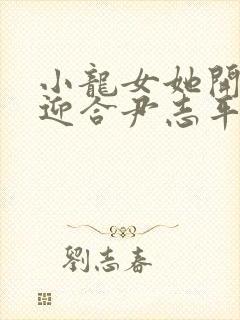 小龍女她開
迎合尹志平
劉志春